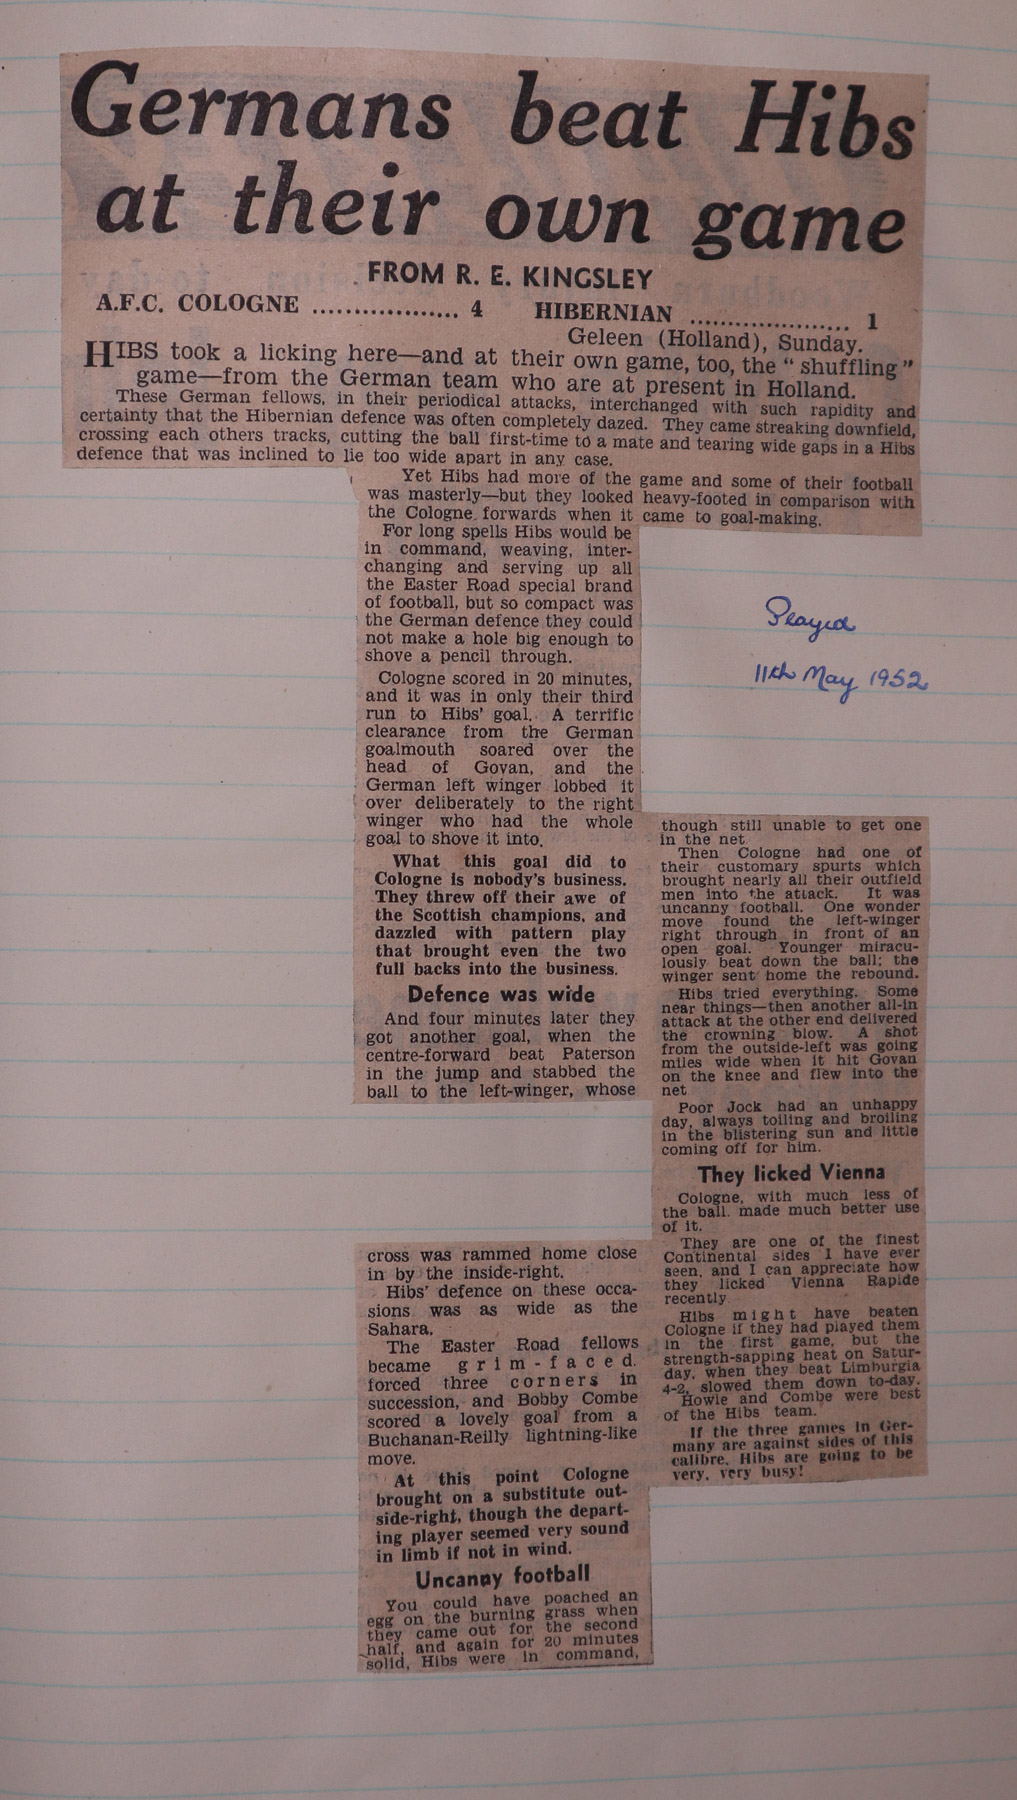 Germans beat Hibs
at their own game
FROM R. E. KINGSLEY
A.F.C. COLOGNE .................. 4 HIBERNIAN .................... 1
Geleen (Holland), Sunday.
HIBS took a licking here—and at their own game, too, the “ shuffling ”
game—from the German team who are at present in Holland.
These German fellows, in their periodical attacks, interchanged with such rapidity and
certainty that the Hibernian defence was often completely dazed. They came streaking downfield,
crossing each others tracks, cutting the ball first-time to a mate and tearing wide gaps in a Hibs
defence that was inclined to lie too wide apart in any case.
Yet Hibs had more of the game and some of their football
was masterly—but they looked heavy-footed in comparison with
the Cologne forwards when it came to goal-making.
For long spells Hibs would be
in command, weaving, inter-
changing and serving up all
the Easter Road special brand
of football, but so compact was
the German defence they could
not make a hole big enough to
shove a pencil through.
Cologne scored in 20 minutes,
and it was in only their third
run to Hibs’ goal. A terrific
clearance from the German
goalmouth soared over the
head of Govan, and the
German left winger lobbed it
over deliberately to the right
winger who had the whole
goal to shove it into.
What this goal did to
Cologne is nobody’s business.
They threw off their awe of
the Scottish champions, and
dazzled with pattern play
that brought even the two
full backs into the business.
Defence was wide
And four minutes later they
got another goal, when the
centre-forward beat Paterson
in the jump and stabbed the
ball to the left-winger, whose
cross was rammed home close
in by the inside-right.
Hibs’ defence on these occa-
sions was as wide as the
Sahara.
The Easter Road fellows
became grim-faced.
forced three corners in
succession, and Bobby Combe
scored a lovely goal from a
Buchanan-Reilly lightning-like
move.
At this point Cologne
brought on a substitute out-
side-right, though the depart-
ing player seemed very sound
in limb if not in wind.
Uncanny football
You could have poached an
egg on the burning grass when
they came out for the second
half, and again for 20 minutes
solid, Hibs were in command,
though still unable to get one
in the net
Then Cologne had one of
their customary spurts which
brought nearly all their outfield
men into the attack. It was
uncanny football. One wonder
move found the left-winger
right through in front of an
open goal. Younger miracu-
lously beat down the ball; the
winger sent home the rebound.
Hibs tried everything. Some
near things—then another all-in
attack at the other end delivered
the crowning blow. A shot
from the outside-left was going
miles wide when it hit Govan
on the knee and flew into the
net
Poor Jock had an unhappy
day, always toiling and broiling
in the blistering sun and little
coming off for him.
They licked Vienna
Cologne, with much less of
the ball. made much better use
of it.
They are one of the finest
Continental sides I have ever
seen, and I can appreciate how
they licked Vienna Rapide
recently
Hibs might have beaten
Cologne if they had played them
in the first game, but the
strength-sapping heat on Satur-
day, when they beat Limburgia
4-2, slowed them down to-day.
Howie and Combe were best
of the Hibs team.
If the three games in Ger-
many are against sides of this
calibre, Hibs are going to be
very, very busy!
Played
11th May 1952